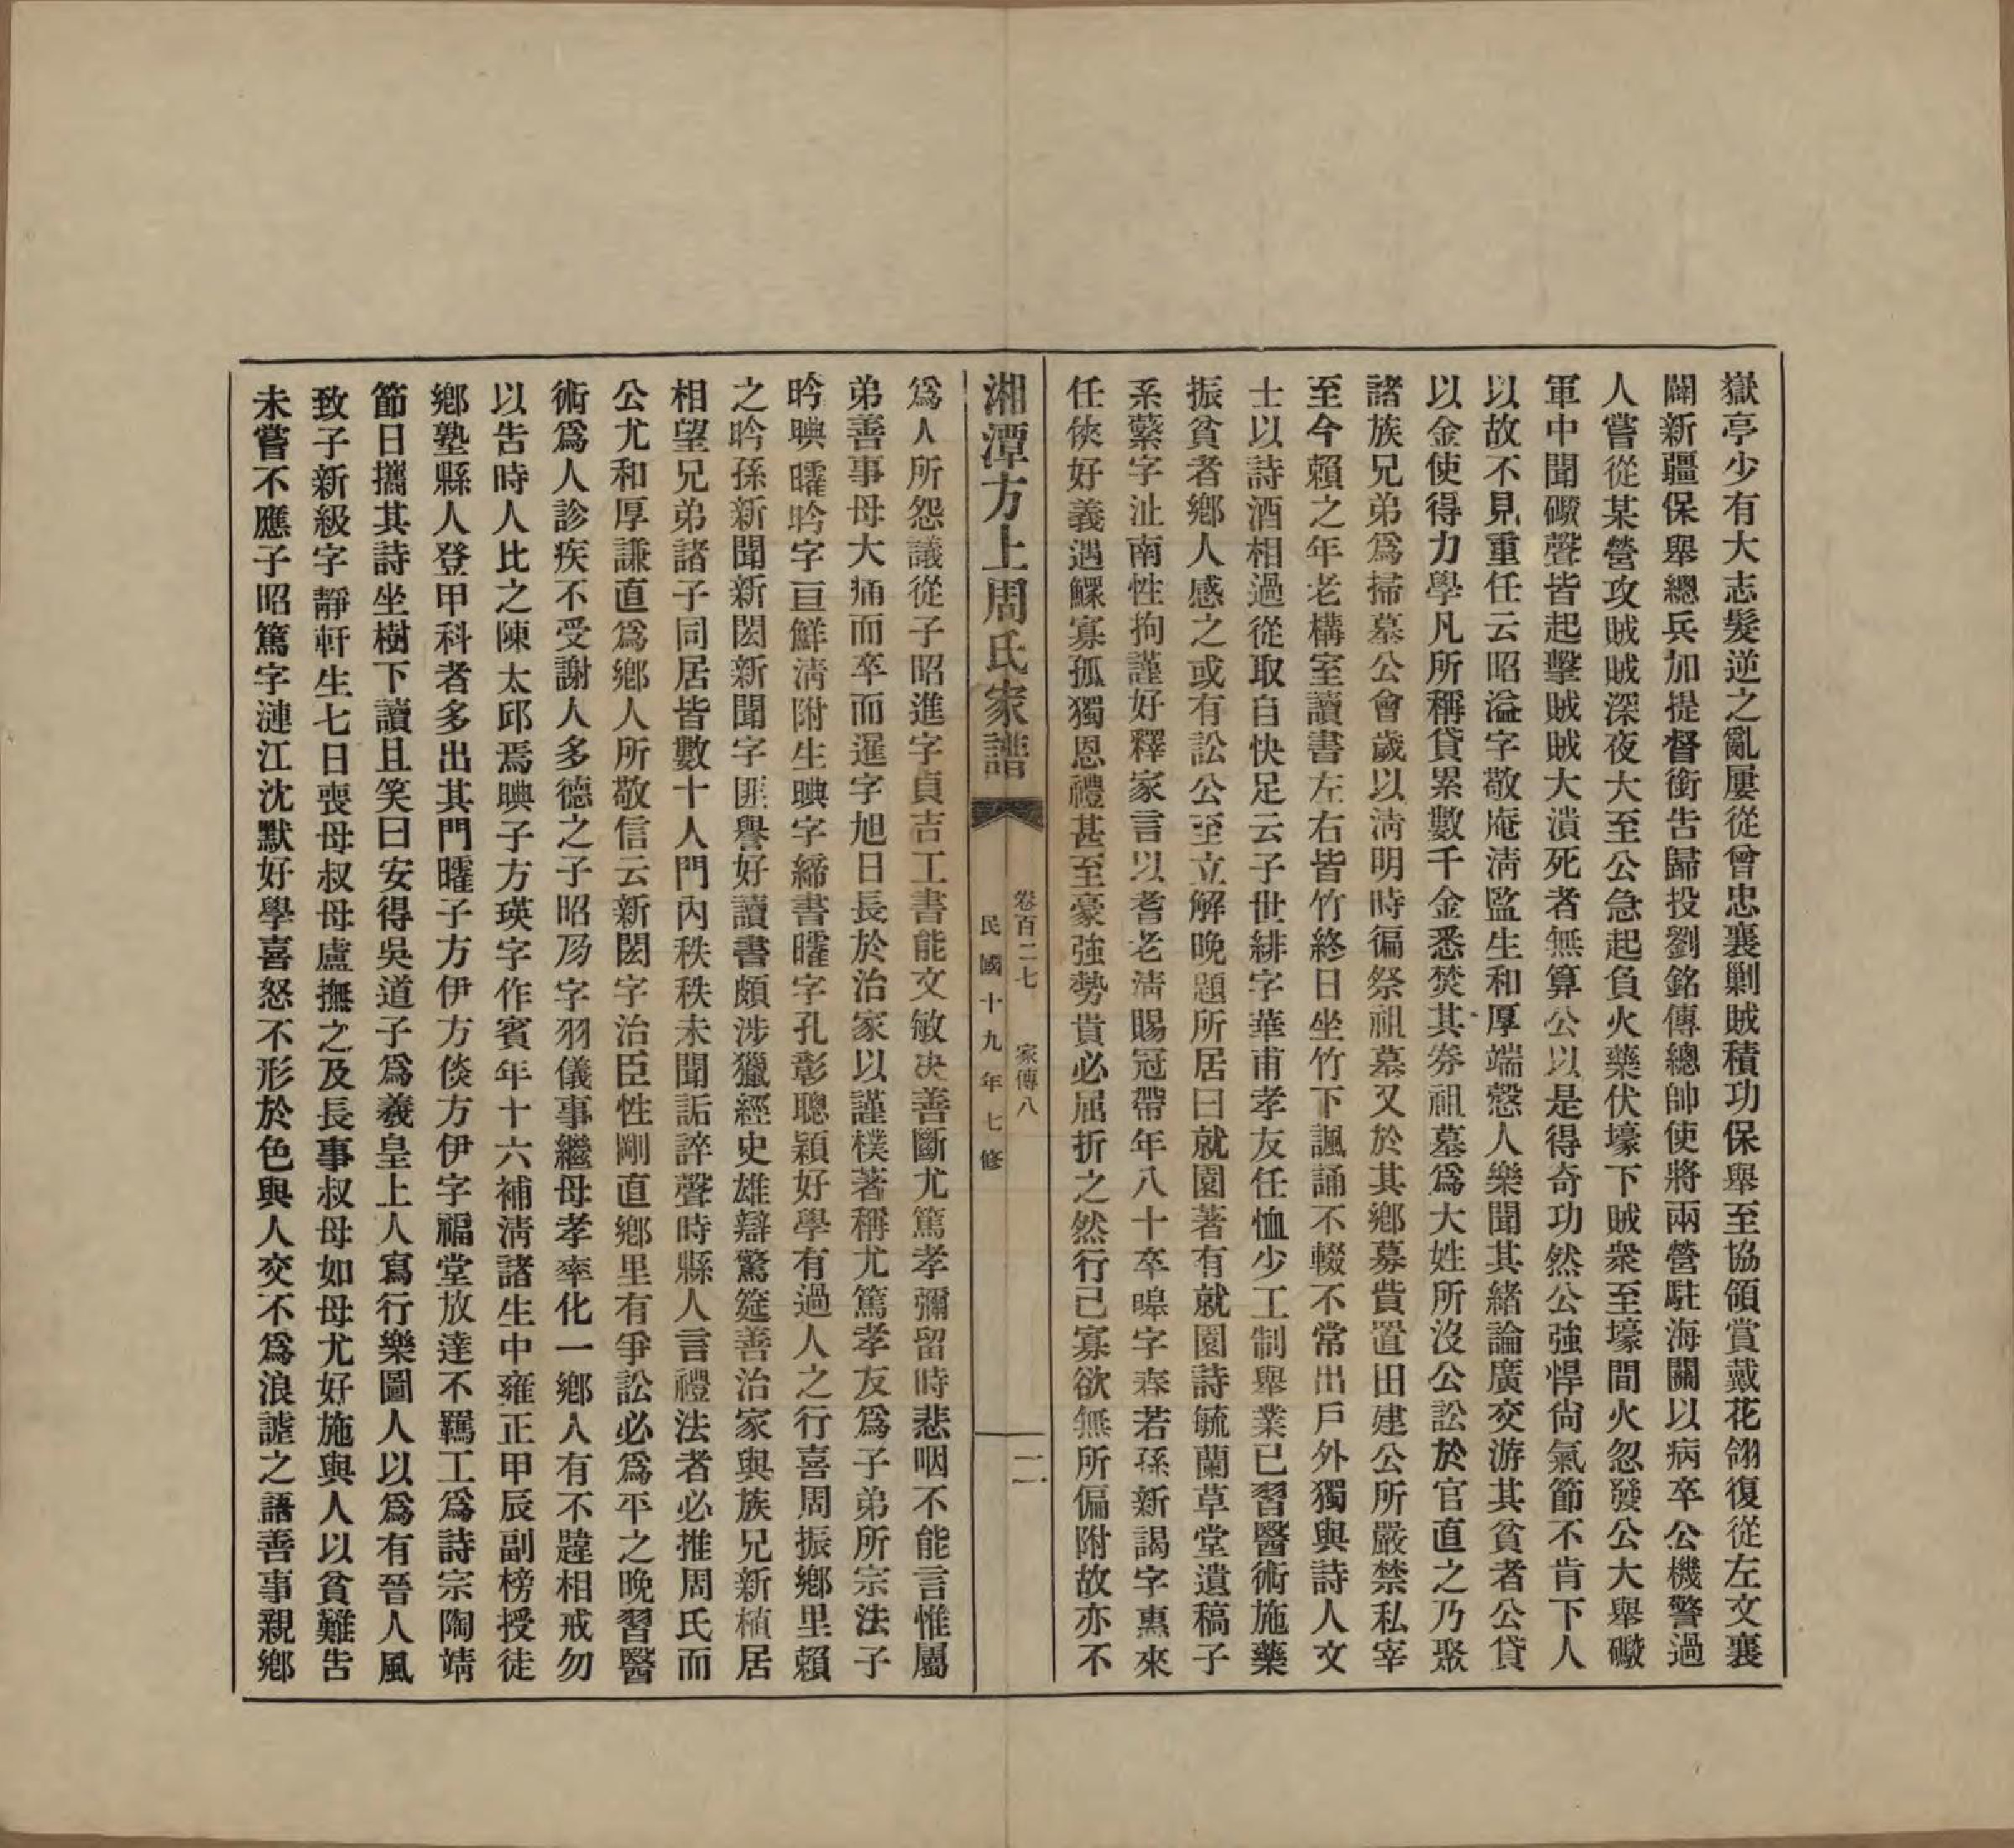 嶽亭少有大志髮逆之亂屢從曾忠襄剿賊積功保舉至協領賞戴花翎復從左文襄
闢新疆保舉總兵加提督銜告歸投劉銘傳總帥使將兩營駐海關以病卒公機警過
人嘗從某營攻賊賊深夜大至公急起負火藥伏壕下賊衆至壕間火忽發公大舉礮
軍中聞礮聲皆起擊賊賊大潰死者無算公以是得奇功然公強悍尙氣節不肯下人
以故不見重任云昭溢字敬庵淸監生和厚端慤人樂聞其緒論廣交游其貧者公貸
以金使得力學凡所稱貸累數千金悉焚其券祖墓爲大姓所沒公訟於官直之乃聚
諸族兄弟爲掃墓公會歲以淸明時徧祭祖墓又於其鄕募貲置田建公所嚴禁私宰
至今賴之年老構室讀書左右皆竹終日坐竹下諷誦不輟不常出戶外獨與詩人文
士以詩酒相過從取自快足云子世緋字華甫孝友任恤少工制舉業已習醫術施藥
振貧者鄕人感之或有訟公至立解晚題所居曰就園著有就園詩毓蘭草堂遺稿子
系蘩字沚南性拘謹好釋家言以耆老淸賜冠帶年八十卒暤字春若孫新謁字熏來
任俠好義遇鰥寡孤獨恩禮甚至豪強勢貴必屈折之然行己寡欲無所偏附故亦不
湘潭方上周氏家譜
卷百二七 家傳八
二
民國十九年七修
爲人所怨議從子昭進字貞吉工書能文敏决善斷尤篤孝彌留時悲咽不能言惟屬
弟善事母大痛而卒而暹字旭日長於治家以謹樸著稱尤篤孝友爲子弟所宗法子
昑㬏曤昑字亘鮮淸附生㬏字締書曤字孔彰聰穎好學有過人之行喜周振鄕里賴
之昑孫新聞新閎新聞字匪譽好讀書頗涉獵經史雄辯驚筵善治家與族兄新植居
相望兄弟諸子同居皆數十人門內秩秩未聞詬誶聲時縣人言禮法者必推周氏而
公尤和厚謙直爲鄕人所敬信云新閎字治臣性剛直鄕里有爭訟必爲平之晚習醫
術爲人診疾不受謝人多德之子昭㘰字羽儀事繼母孝率化一鄕人有不韙相戒勿
以告時人比之陳太邱焉㬏子方瑛字作賓年十六補淸諸生中雍正甲辰副榜授徒
鄕塾縣人登甲科者多出其門曤子方伊方倓方伊字福堂放達不羈工爲詩宗陶靖
節日攜其詩坐樹下讀且笑曰安得吳道子爲羲皇上人寫行樂圖人以爲有晉人風
致子新級字靜軒生七日喪母叔母盧撫之及長事叔母如母尤好施與人以貧難吿
未嘗不應子昭篤字漣江沈默好學喜怒不形於色與人交不爲浪謔之語善事親鄕